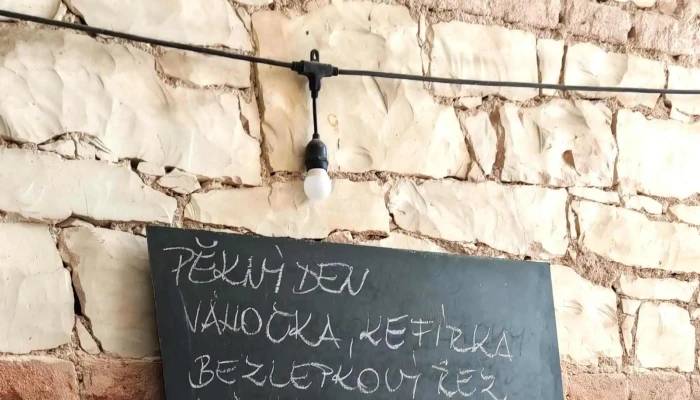 PĚKNÝ DEN
VÁNOČKA, KEFÍRKA
BEZLEPKOVÝ ŘEZ